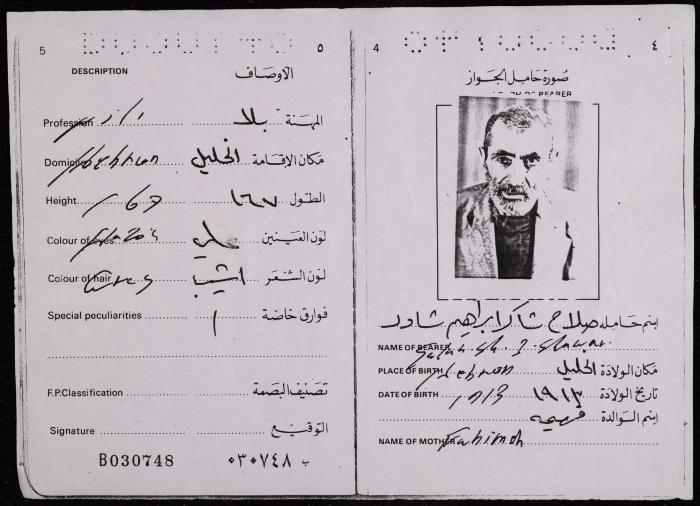 5
٥
DESCRIPTION
الأوصاف
Profession
المهنة بلا
Domicile Hebron
مكان الإقامة الخليل
Height 167
الطول ١٦٧
Colour of eyes
لون العينين عسلي
Colour of hair Grey
لون الشعر اشيب
Special peculiarities
فوارق خاصة /
F.P.Classification
تصنيف البصمة
Signature
التوقيع
B030748
ب ٠٣٠٧٤٨
4
٤
صورة حامل الجواز
OF BEARER
إسم حامله صلاح شاكر ابراهيم شاور
NAME OF BEARER Salah Sh. I. Shawar
مكان الولادة الخليل
PLACE OF BIRTH Hebron
تاريخ الولادة ١٩١٣
DATE OF BIRTH 1913
إسم الوالدة فهيمه
NAME OF MOTHER Fahimeh